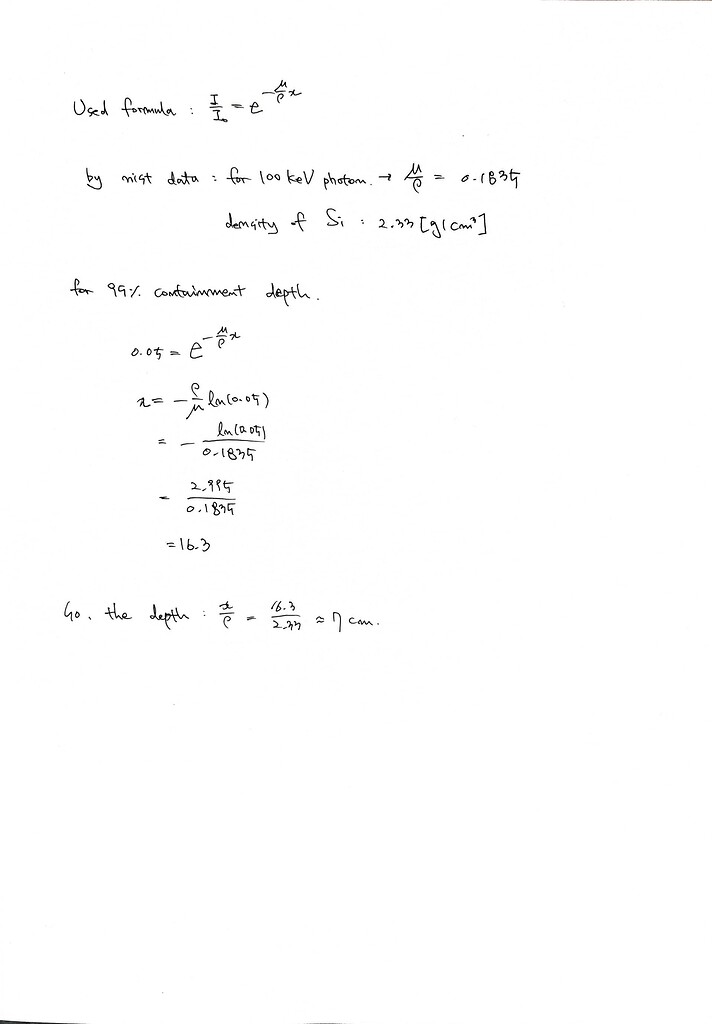 Used formula : I/I₀ = e^(-μ/ρ x)
by nist data : for 100 keV photon. → μ/ρ = 0.1835
density of Si : 2.33 [g/cm³]
for 99% containment depth.
0.05 = e^(-μ/ρ x)
x = - ρ/μ ln(0.05)
= - ln(0.05)/0.1835
= 2.995/0.1835
= 16.3
So. the depth : x/ρ = 16.3/2.33 ≈ 7 cm.